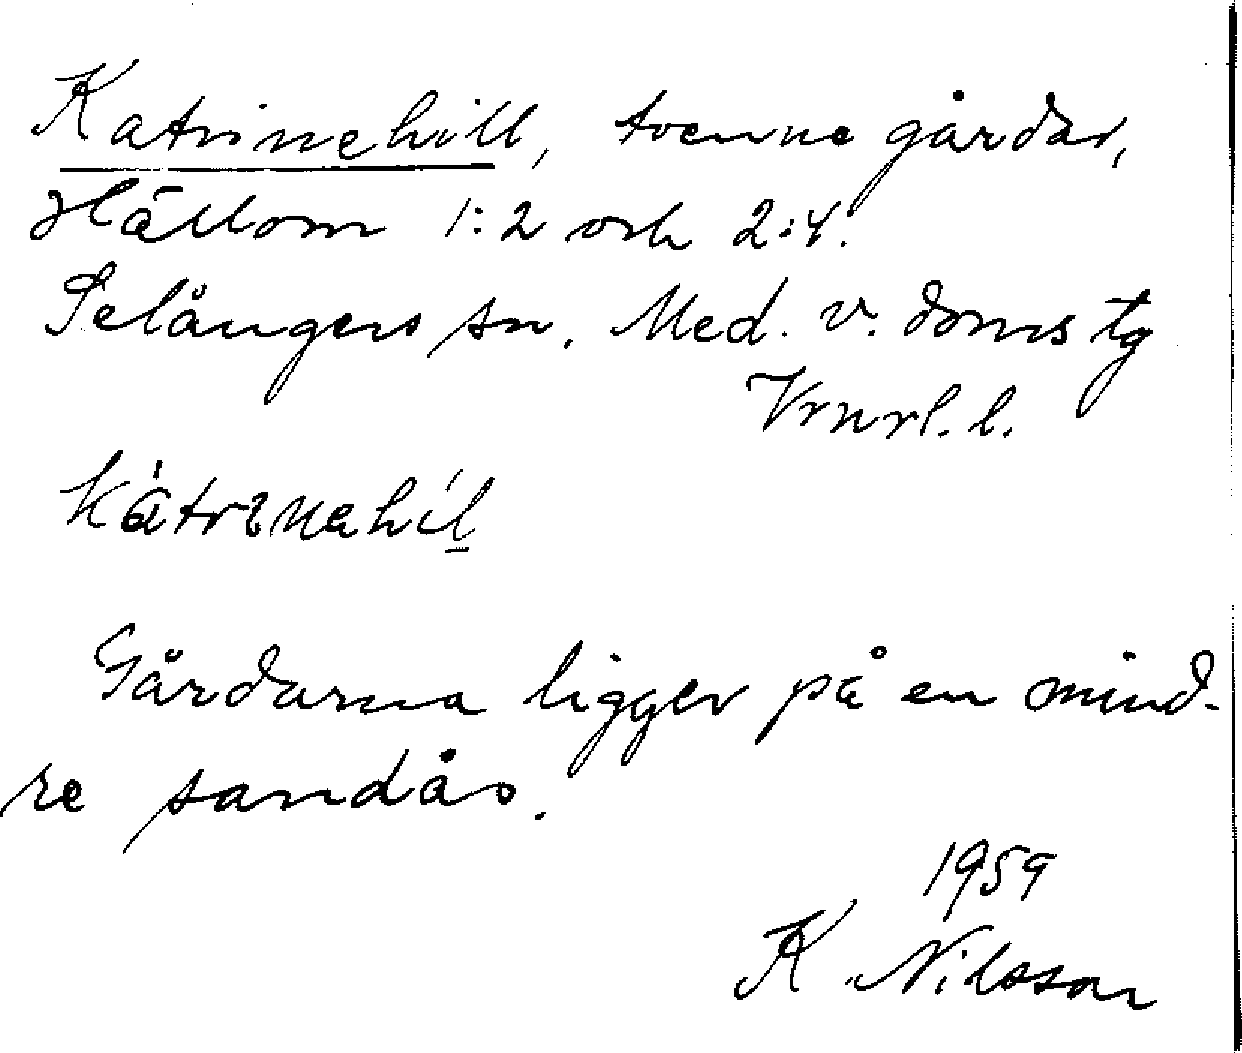 Katrinehill, tvenne gårdar,
Hällom 1:2 och 2:4.
Selångers sn. Med. v. doms tg
Vrnrl. l.
Kátrinehíl
Gårdarna ligger på en mind-
re sandås.
1959
K Nilsson